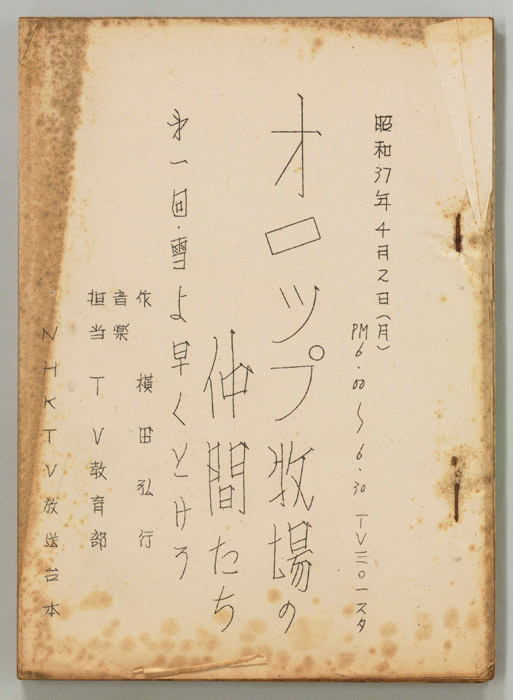 昭和37年4月2日(月)
PM6.00〜6.30 TV三〇一スタ
オロップ牧場の
仲間たち
才一回・雪よ早くとけろ
作 横田弘行
音楽
担当 TV教育部
NHKTV放送台本